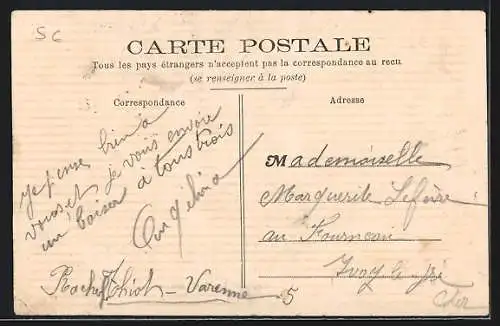 5 c
CARTE POSTALE
Tous les pays étrangers n'acceptent pas la correspondance au recu
(se renseigner à la poste)
Correspondance
Je pense bien à
vous et je vous envoie
un baiser à tous trois
Angelina
Rocher Thiot - Varenne
5
Adresse
Mademoiselle
Marguerite Lefèvre
au Fourneau
Ivoy le Pré
Cher